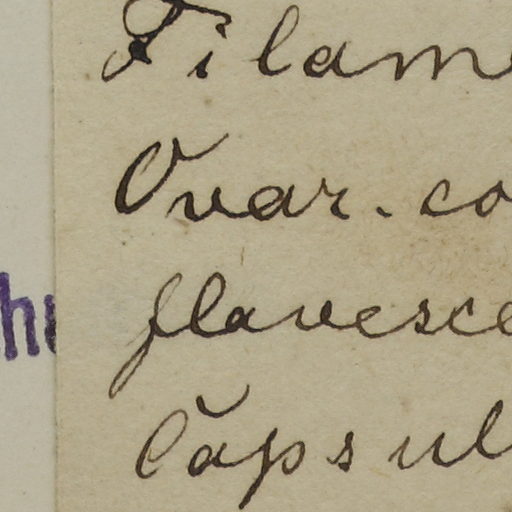 Filam
Ovar. co
hu
flavesce
Capsul